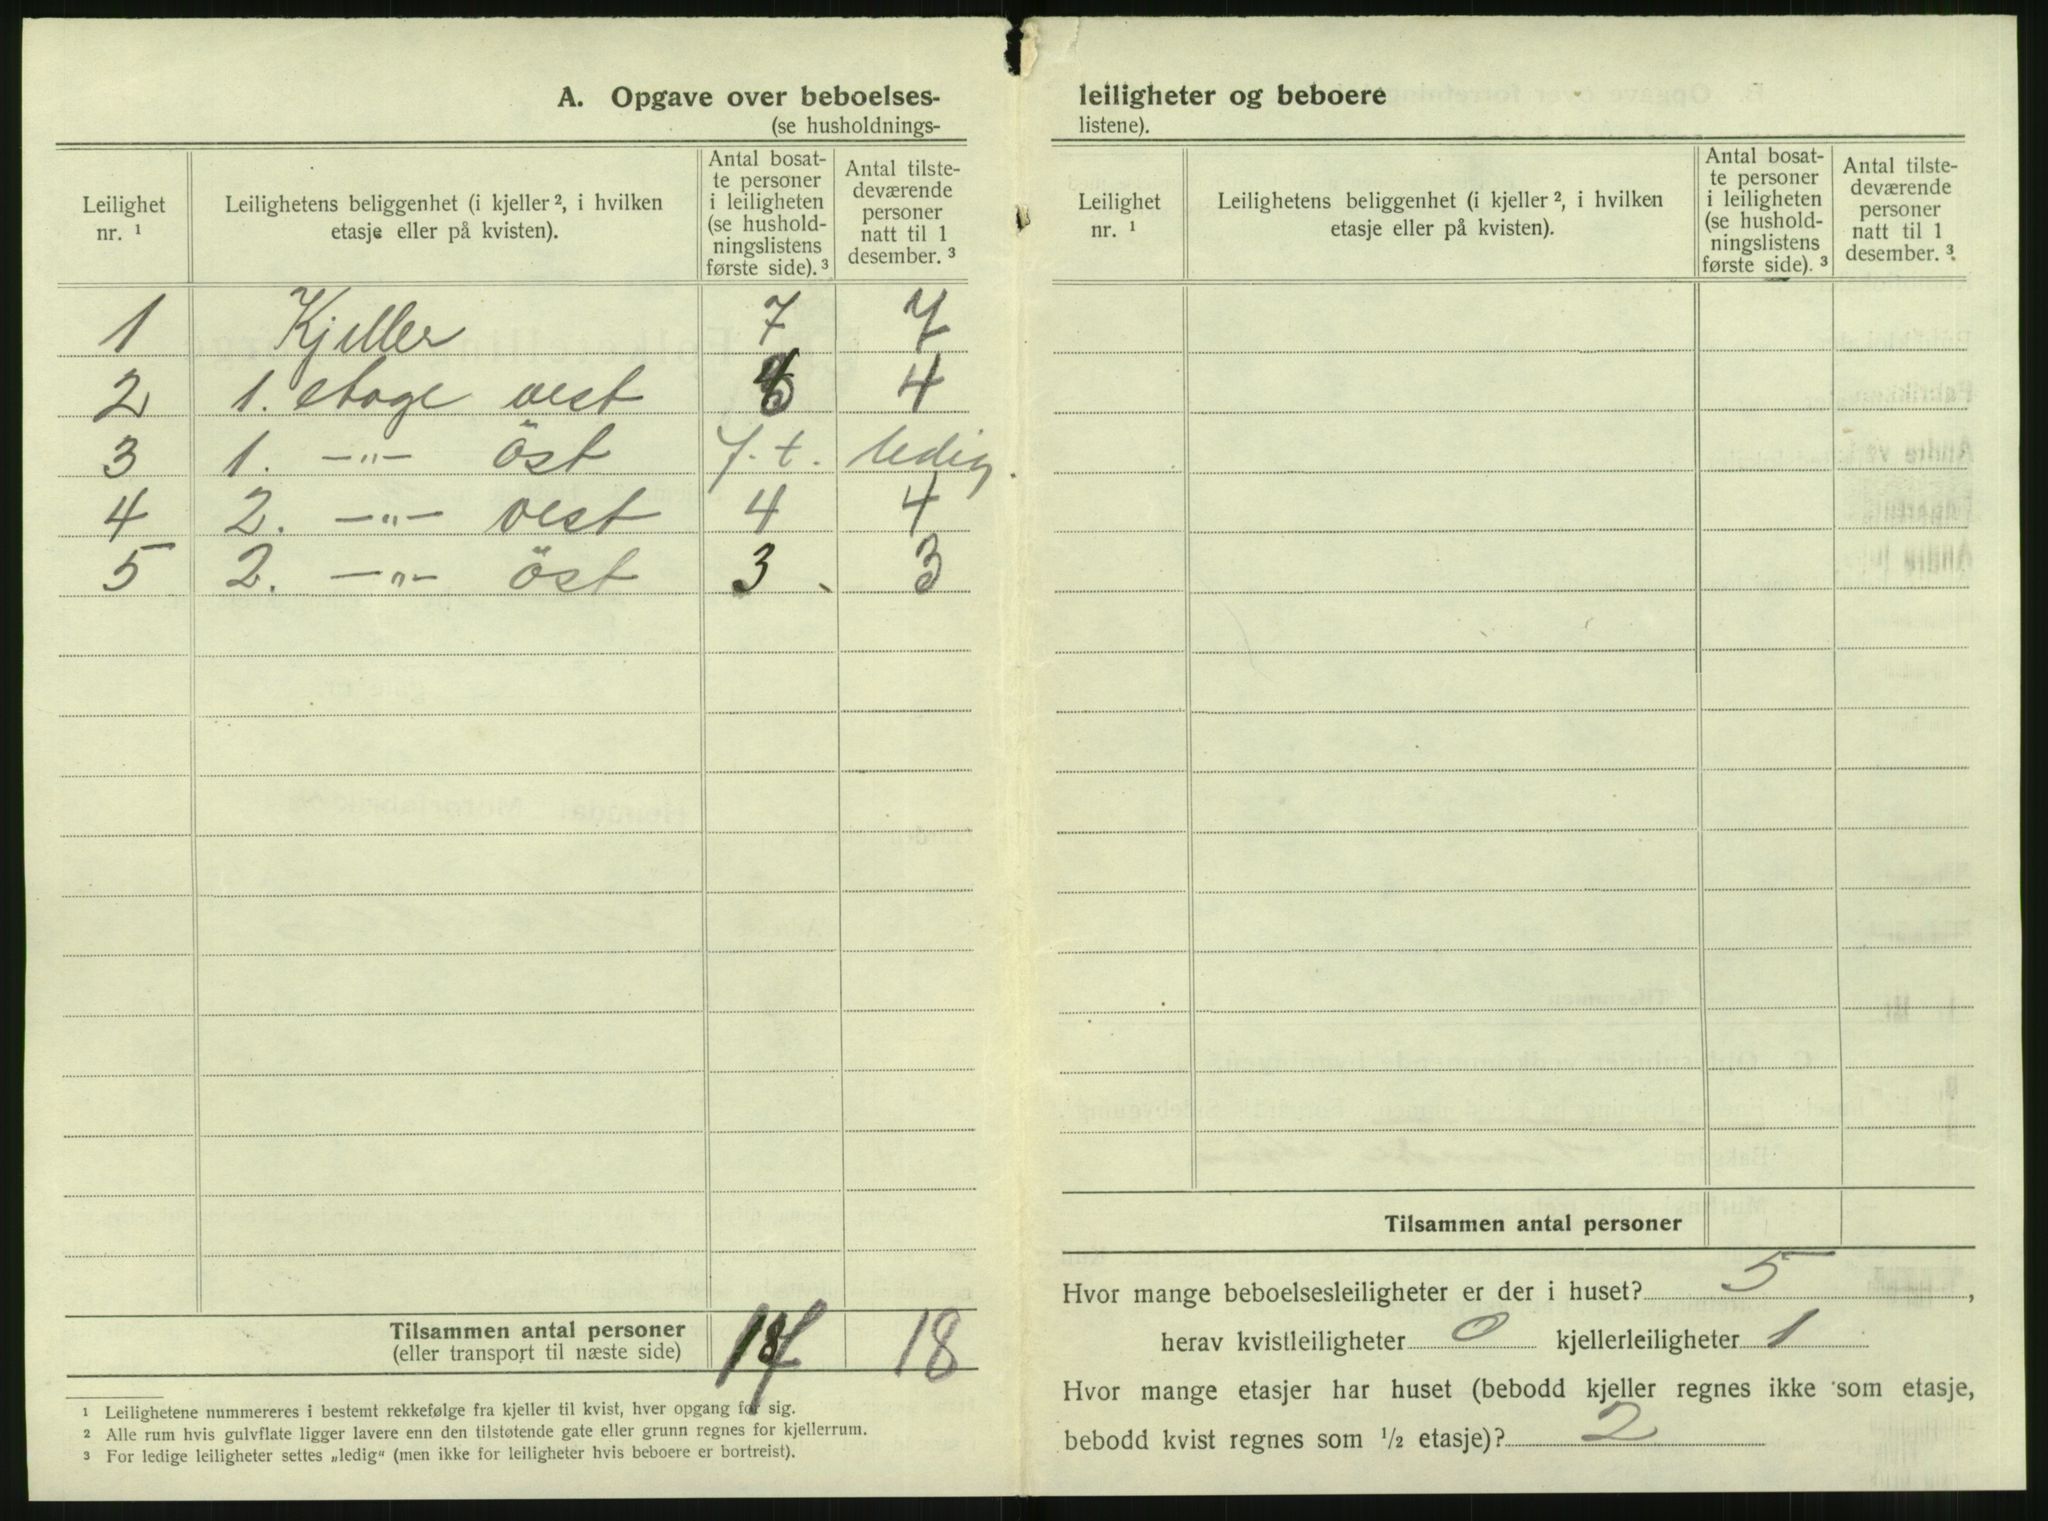 A. Opgave over beboelses-
(se husholdnings-
Leilighet nr. ¹ | Leilighetens beliggenhet (i kjeller ², i hvilken etasje eller på kvisten). | Antal bosat-te personer i leiligheten (se hushold-ningslistens første side). ³ | Antal tilste-deværende personer natt til 1 desember. ³
1 Kjeller 7 7
2 1. etage vest 4 4
3 1. —"— öst f. t. ledig.
4 2. —"— vest 4 4
5 2. —"— öst 3 3
Tilsammen antal personer 18 18
(eller transport til næste side)
¹ Leilighetene nummereres i bestemt rekkefølge fra kjeller til kvist, hver opgang for sig.
² Alle rum hvis gulvflate ligger lavere enn den tilstøtende gate eller grunn regnes for kjellerrum.
³ For ledige leiligheter settes „ledig“ (men ikke for leiligheter hvis beboere er bortreist).
leiligheter og beboere
listene).
Leilighet nr. ¹ | Leilighetens beliggenhet (i kjeller ², i hvilken etasje eller på kvisten). | Antal bosat-te personer i leiligheten (se hushold-ningslistens første side). ³ | Antal tilste-deværende personer natt til 1 desember. ³
Tilsammen antal personer
Hvor mange beboelsesleiligheter er der i huset? 5,
herav kvistleiligheter 0 kjellerleiligheter 1
Hvor mange etasjer har huset (bebodd kjeller regnes ikke som etasje,
bebodd kvist regnes som ½ etasje)? 2